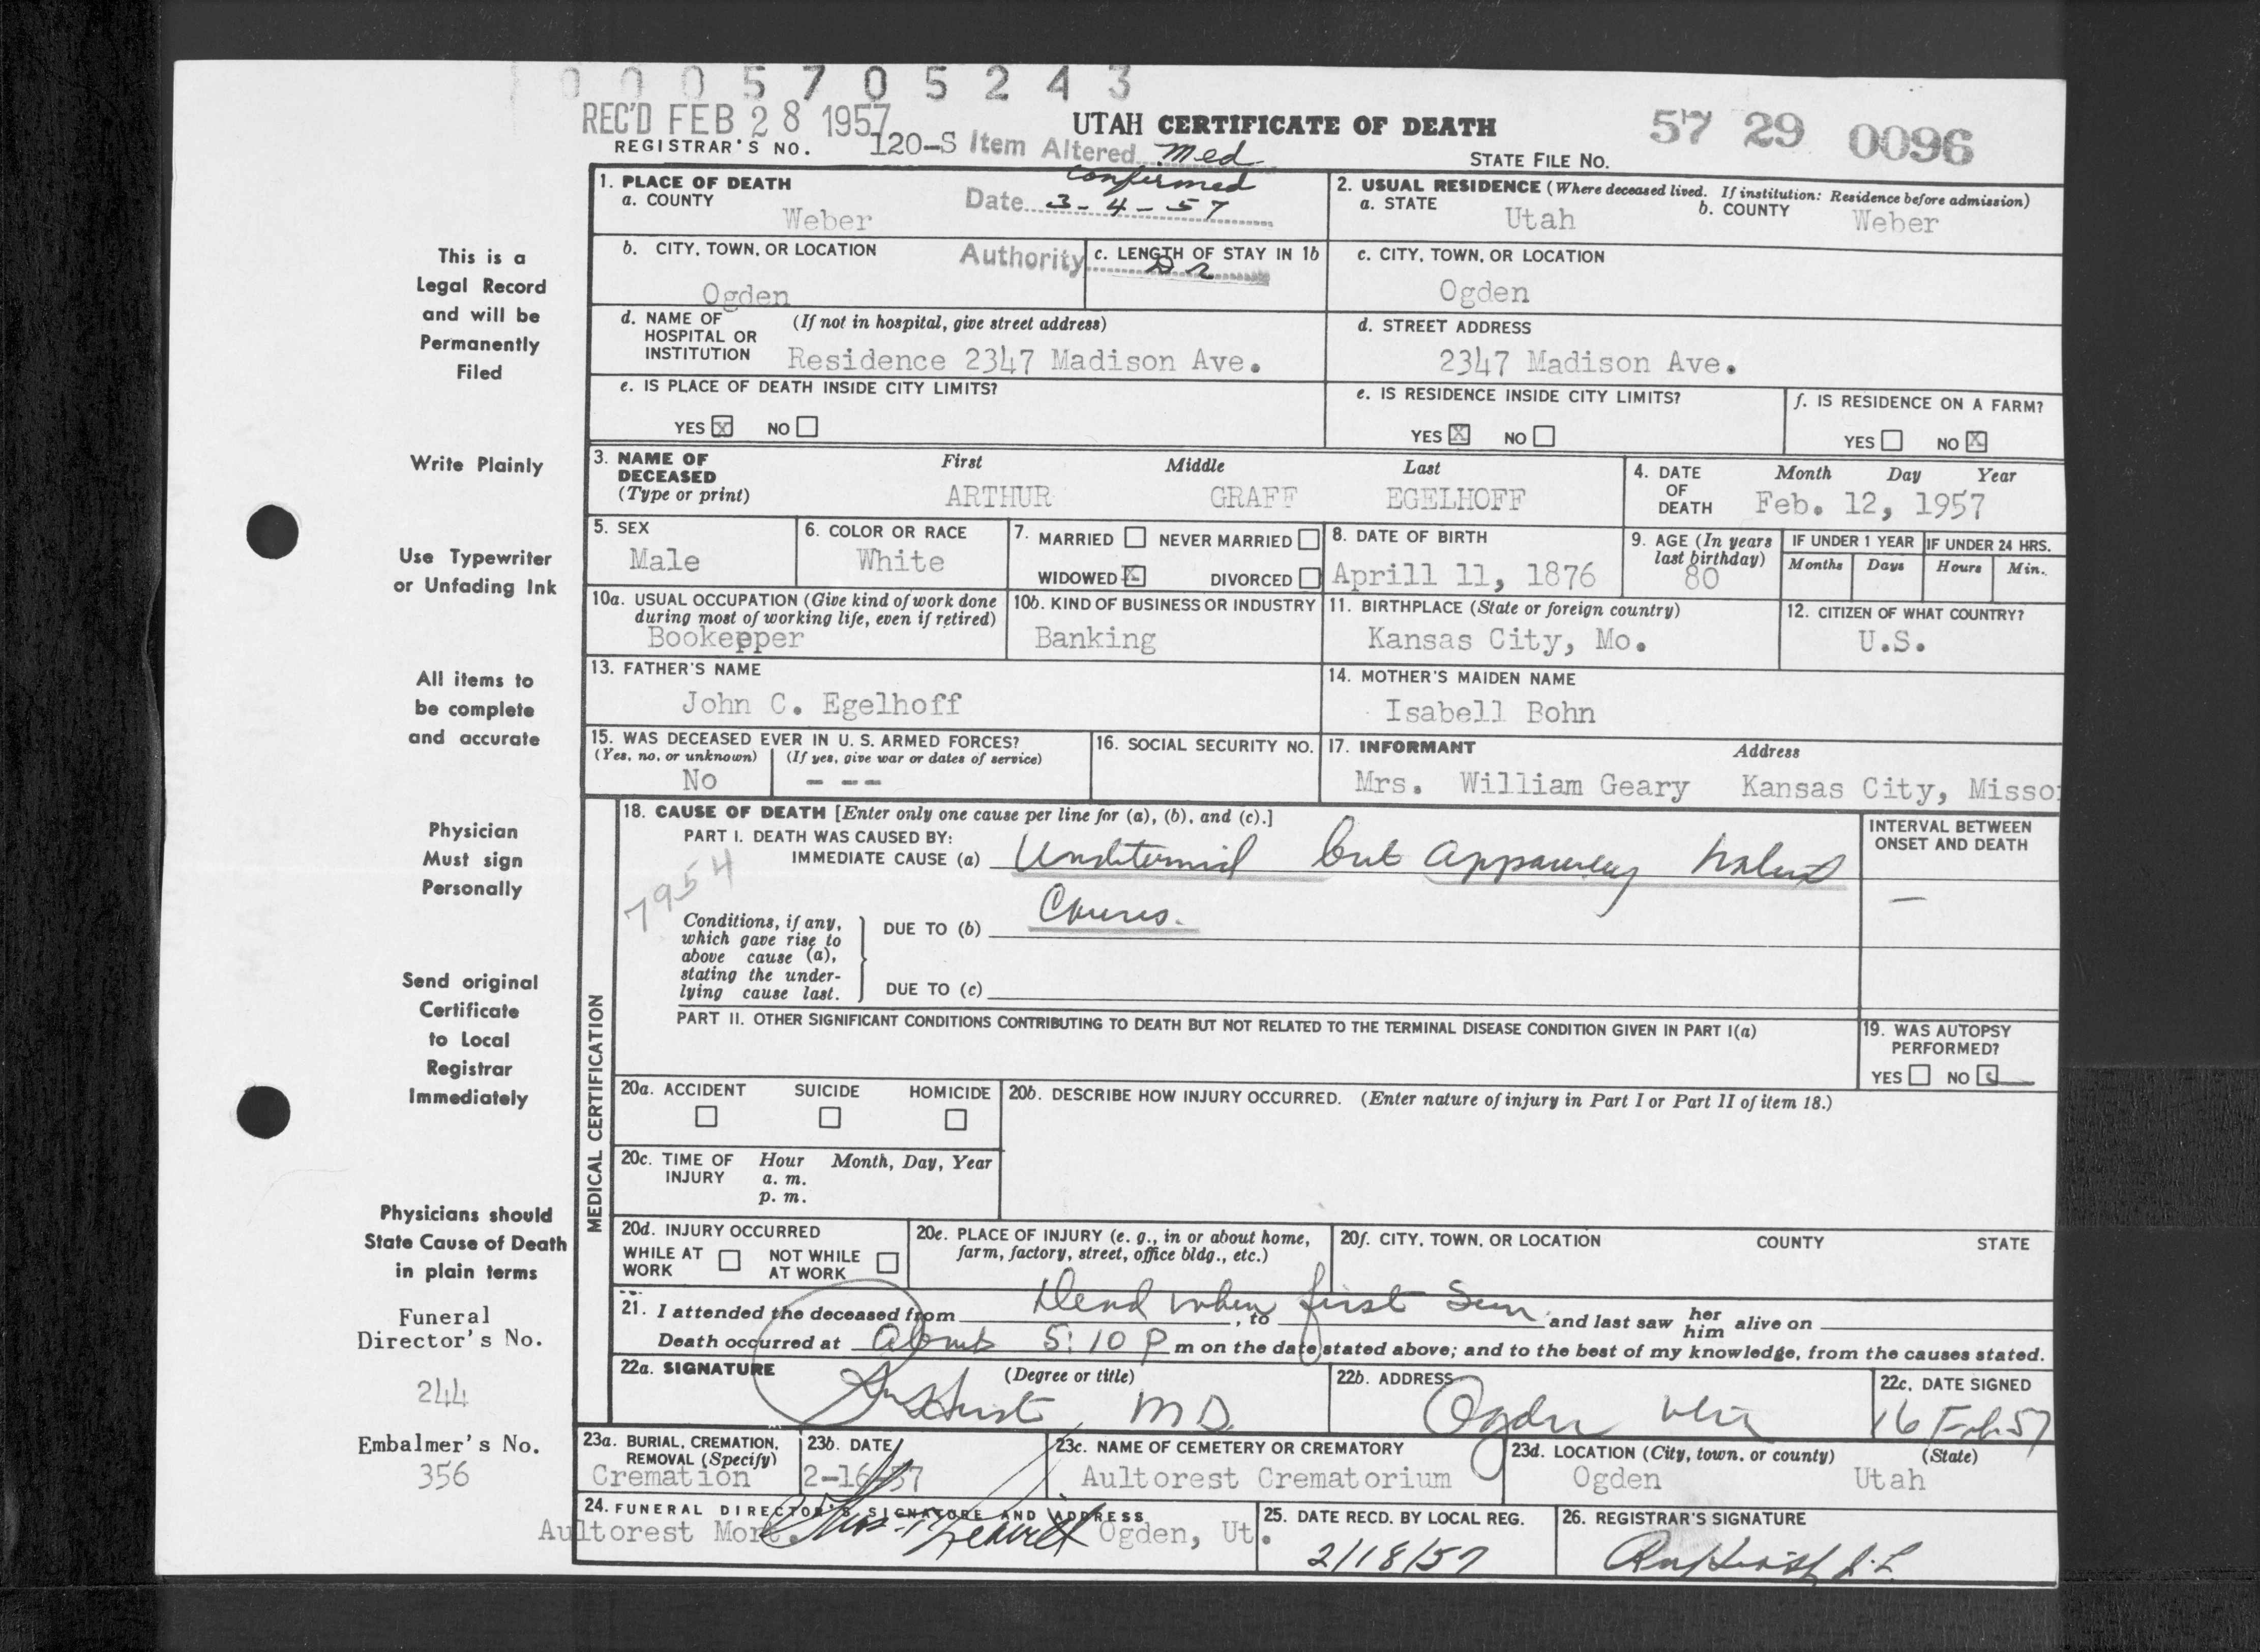 0005705243
REC'D FEB 28 1957
UTAH CERTIFICATE OF DEATH
57 29 0096
REGISTRAR'S NO. 120-S Item Altered Med
STATE FILE NO.
confirmed
Date 3-4-57
Authority Dr
1. PLACE OF DEATH
a. COUNTY
Weber
2. USUAL RESIDENCE (Where deceased lived. If institution: Residence before admission)
a. STATE Utah b. COUNTY Weber
b. CITY, TOWN, OR LOCATION
Ogden
c. LENGTH OF STAY IN 1b
c. CITY, TOWN, OR LOCATION
Ogden
d. NAME OF HOSPITAL OR INSTITUTION (If not in hospital, give street address)
Residence 2347 Madison Ave.
d. STREET ADDRESS
2347 Madison Ave.
e. IS PLACE OF DEATH INSIDE CITY LIMITS?
YES X NO
e. IS RESIDENCE INSIDE CITY LIMITS?
YES X NO
f. IS RESIDENCE ON A FARM?
YES NO X
3. NAME OF DECEASED (Type or print)
First Middle Last
ARTHUR GRAFF EGELHOFF
4. DATE OF DEATH
Month Day Year
Feb. 12, 1957
5. SEX
Male
6. COLOR OR RACE
White
7. MARRIED NEVER MARRIED
WIDOWED X DIVORCED
8. DATE OF BIRTH
Aprill 11, 1876
9. AGE (In years last birthday)
80
IF UNDER 1 YEAR
Months Days
IF UNDER 24 HRS.
Hours Min.
10a. USUAL OCCUPATION (Give kind of work done during most of working life, even if retired)
Bookepper
10b. KIND OF BUSINESS OR INDUSTRY
Banking
11. BIRTHPLACE (State or foreign country)
Kansas City, Mo.
12. CITIZEN OF WHAT COUNTRY?
U.S.
13. FATHER'S NAME
John C. Egelhoff
14. MOTHER'S MAIDEN NAME
Isabell Bohn
15. WAS DECEASED EVER IN U. S. ARMED FORCES?
(Yes, no, or unknown) (If yes, give war or dates of service)
No - --
16. SOCIAL SECURITY NO.
17. INFORMANT Address
Mrs. William Geary Kansas City, Misso
MEDICAL CERTIFICATION
18. CAUSE OF DEATH [Enter only one cause per line for (a), (b), and (c).]
PART I. DEATH WAS CAUSED BY:
IMMEDIATE CAUSE (a) Undetermined but apparently natural
7954
Conditions, if any, which gave rise to above cause (a), stating the underlying cause last.
DUE TO (b) Causes.
DUE TO (c)
INTERVAL BETWEEN ONSET AND DEATH
—
PART II. OTHER SIGNIFICANT CONDITIONS CONTRIBUTING TO DEATH BUT NOT RELATED TO THE TERMINAL DISEASE CONDITION GIVEN IN PART I(a)
19. WAS AUTOPSY PERFORMED?
YES NO
20a. ACCIDENT SUICIDE HOMICIDE
20b. DESCRIBE HOW INJURY OCCURRED. (Enter nature of injury in Part I or Part II of item 18.)
20c. TIME OF INJURY Hour Month, Day, Year
a. m.
p. m.
20d. INJURY OCCURRED
WHILE AT WORK NOT WHILE AT WORK
20e. PLACE OF INJURY (e. g., in or about home, farm, factory, street, office bldg., etc.)
20f. CITY, TOWN, OR LOCATION COUNTY STATE
21. I attended the deceased from Dead when first Seen, to and last saw her him alive on
Death occurred at About 5:10 P m on the date stated above; and to the best of my knowledge, from the causes stated.
22a. SIGNATURE (Degree or title)
M D
22b. ADDRESS
Ogden Utah
22c. DATE SIGNED
16 Feb 57
23a. BURIAL, CREMATION, REMOVAL (Specify)
Cremation
23b. DATE
2-16-57
23c. NAME OF CEMETERY OR CREMATORY
Aultorest Crematorium
23d. LOCATION (City, town, or county) (State)
Ogden Utah
24. FUNERAL DIRECTOR'S SIGNATURE AND ADDRESS
Aultorest Mort. Ogden, Ut.
25. DATE RECD. BY LOCAL REG.
2/18/57
26. REGISTRAR'S SIGNATURE
This is a
Legal Record
and will be
Permanently
Filed
Write Plainly
Use Typewriter
or Unfading Ink
All items to
be complete
and accurate
Physician
Must sign
Personally
Send original
Certificate
to Local
Registrar
Immediately
Physicians should
State Cause of Death
in plain terms
Funeral
Director's No.
244
Embalmer's No.
356